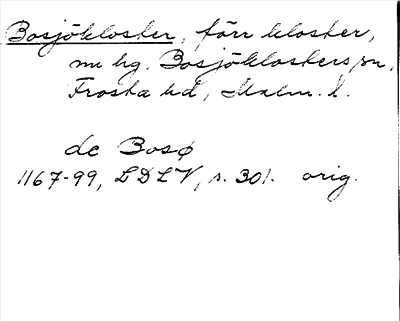 Bosjökloster, förr kloster,
nu hg. Bosjöklosters sn,
Frosta hd, Malm. l.
de Bosø
1167-99, LDLV, s. 301. orig.